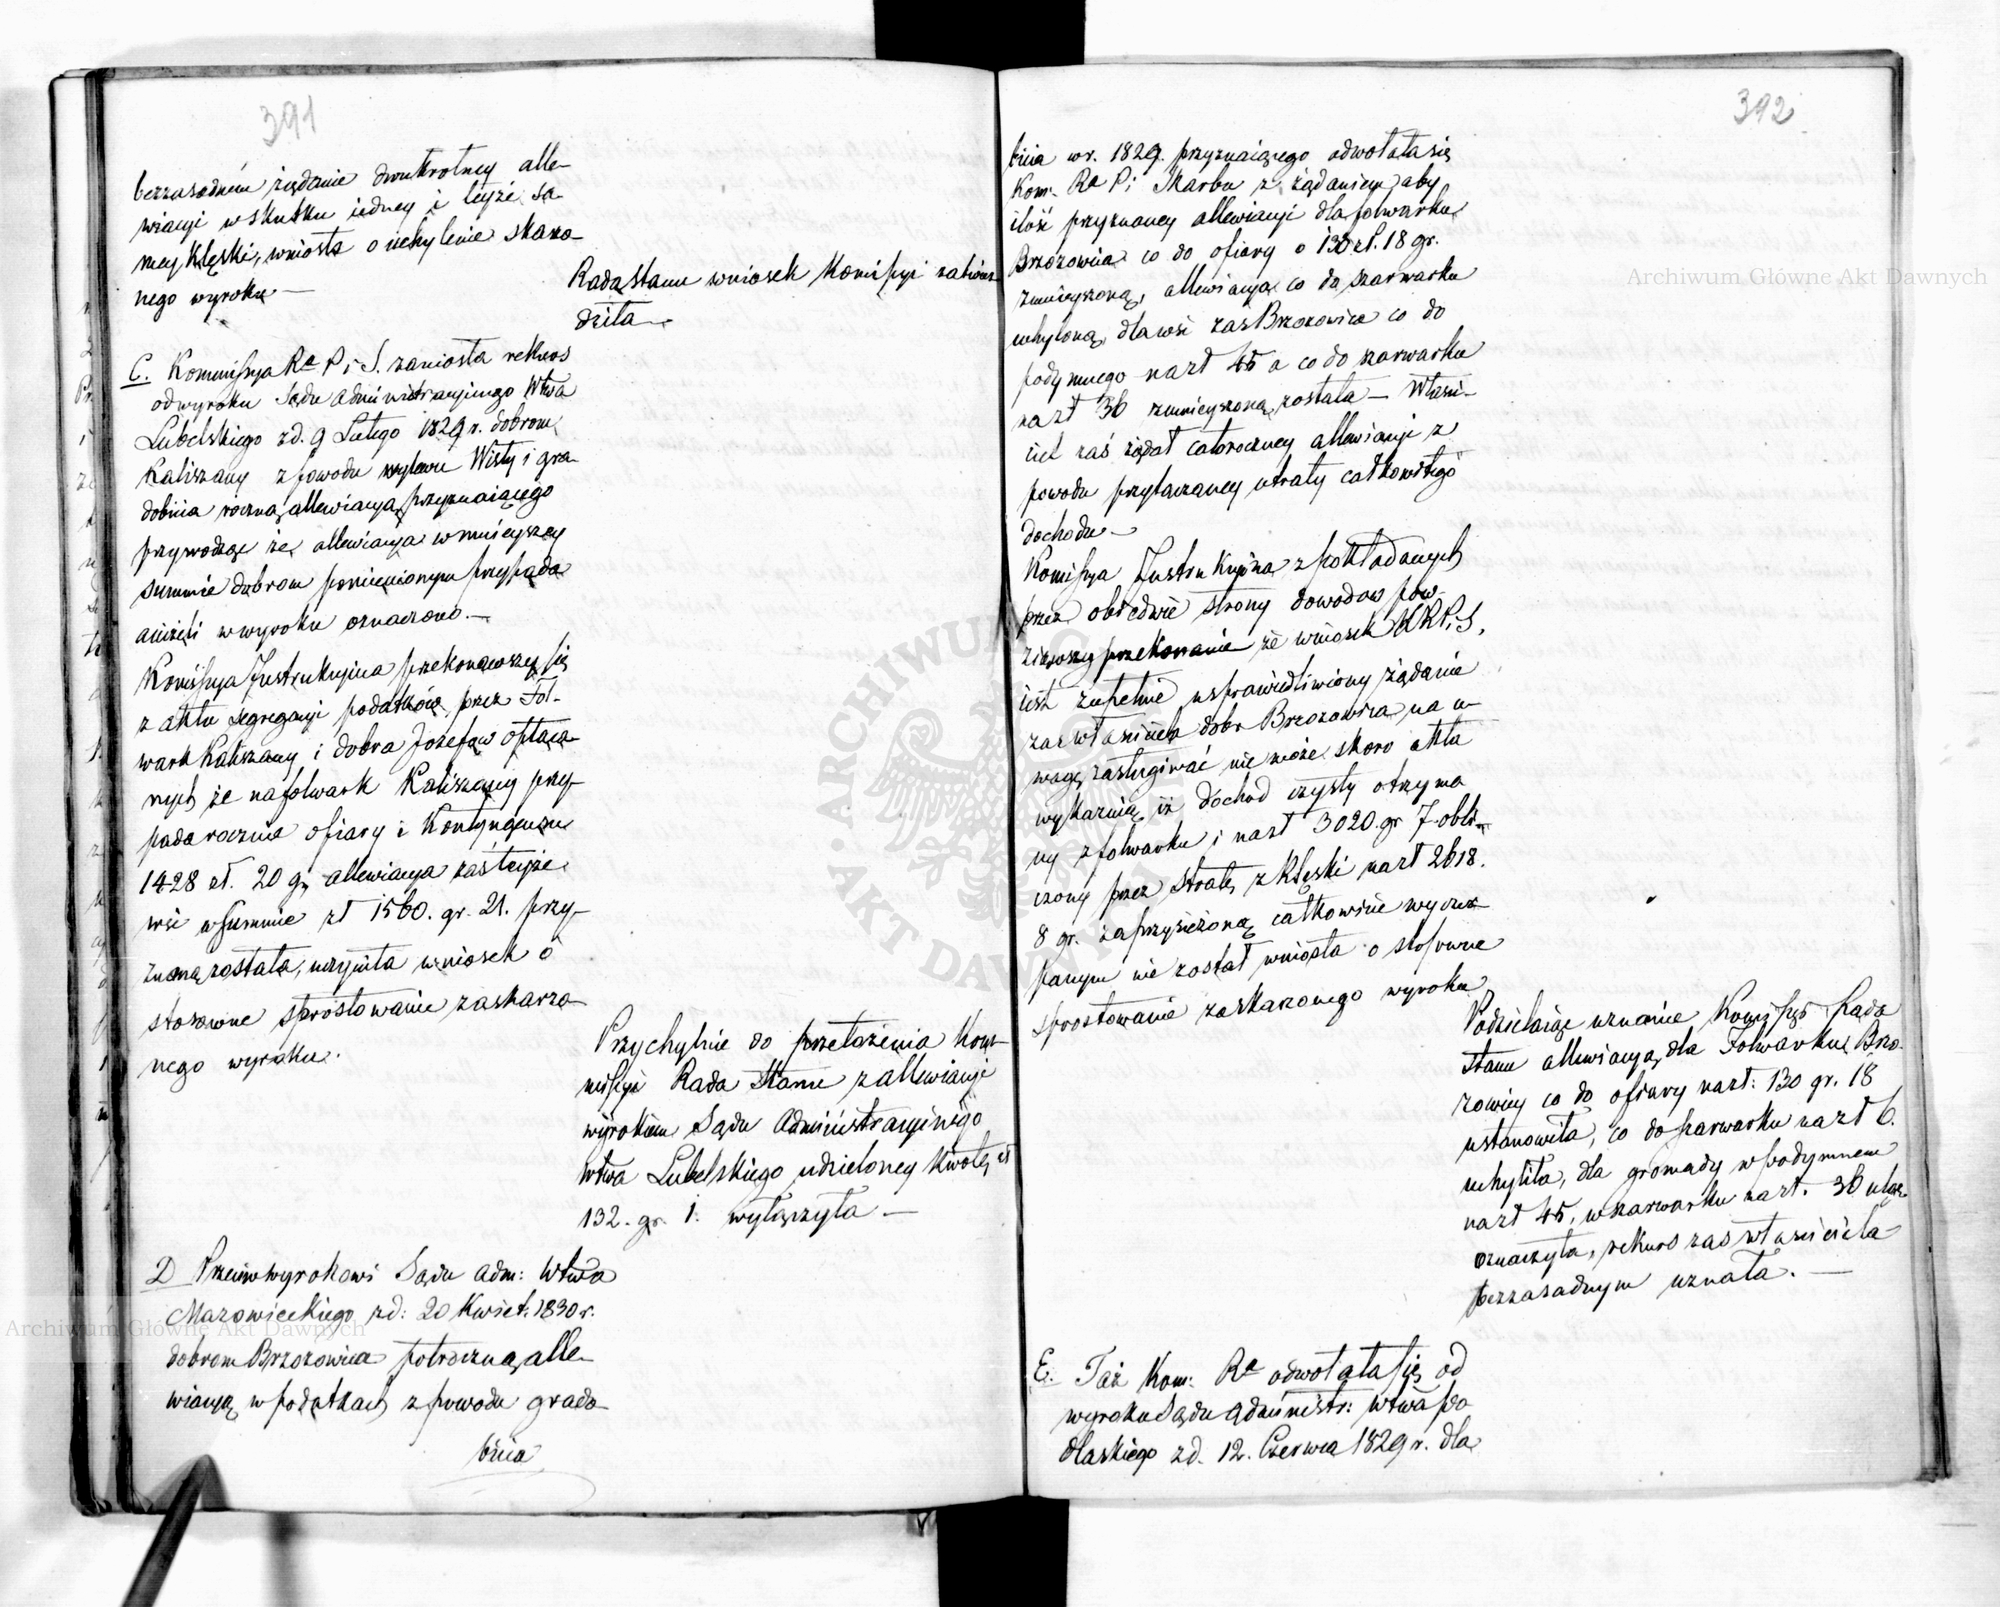 391
bezzasadném żądanie dwukrotney alle-
wiacyi w skutku iedney i teyże sa-
mey klęski, wniosła o uchylenie skarżo-
nego wyroku —
Rada Stanu wniosek Komissyi zatwier-
dziła —
C. Kommissya Ra P i S. zaniosła rekurs
od wyroku Sądu Administracyinego Wtwa
Lubelskiego z d. 9 Lutego 1829 r. dobrom
Kaliszany z powodu wylewu Wisły i gra-
dobicia roczną allewiacyą przyznaiącego
przywodząc że allewiacya w mnieyszey
summie dobrom pomienionym przypada
aniżeli w wyroku oznaczono. —
Komissya Instrukcyina przekonawszy się
z aktu segregacyi podatków przez Fol-
wark Kaliszany i dobra Józefów opłaca-
nych że na folwark Kaliszany przy-
pada rocznie ofiary i Kontyngensu
1428 zł. 20 gr, allewiacya zaś teyże
wsi w summie zł 1560. gr. 21. przy-
znaną została, uczyniła wniosek o
stosowne sprostowanie zaskarżo-
nego wyroku.
Przychylnie do przełożenia Kom-
missyi Rada Stanu z allewiacyi
wyrokiem Sądu Administracyinego
Wtwa Lubelskiego udzieloney kwotę zł
132. gr. 1. wyłączyła —
D Przeciw wyrokowi Sądu adm: Wtwa
Mazowieckiego z d: 20 Kwiet. 1830 r.
dobrom Brzozowica półroczną alle-
wiacyą w podatkach z powodu grado-
bicia
392
bicia w r. 1829. przyznaiącego odwołała się
Kom. Ra P i Skarbu z żądaniem aby
ilość przyznaney allewiacyi dla folwarku
Brzozowica co do ofiary o 130 zł. 18 gr.
zmnieyszoną, allewiacya co do szarwarku
uchyloną, dla wsi zaś Brzozowica co do
podymnego na zł 45 a co do szarwarku
na zł 36 zmnieyszoną została — Właści-
ciel zaś żądał całoroczney allewiacyi z
powodu przytaczaney utraty całkowitego
dochodu —
Komissya Instrukcyina z pokładanych
przez obiedwie strony dowodów pow-
ziąwszy przekonanie że wniosek KRPiS,
iest zupełnie usprawiedliwiony żądanie
zaś właściciela dóbr Brzozowica na u-
wagę zasługiwać nie może skoro akta
wykazuią iż dochód czysty otrzyma
ny z folwarku i na zł 3020. gr 7 obli-
czony przez stratę z klęski na zł 2618.
8 gr. zaprzysiężoną całkowicie wyczer-
panym nie został wniosła o stosowne
sprostowanie zaskarżonego wyroku
Podzielaiąc uznanie Komissyi Rada
Stanu allewiacyą dla Folwarku Brzo-
zowicy co do ofiary na zł: 130 gr. 18
ustanowiła, co do szarwarku na zł 6.
uchyliła, dla gromady w podymnem
na zł 45, w szarwarku na zł. 36 ulgę
oznaczyła, rekurs zaś właściciela
bezzasadnym uznała. —
E. Taż Kom: Ra odwołała się od
wyroku Sądu Administr: Wtwa Po
dlaskiego z d. 12. Czerwca 1829 r. dla
Archiwum Główne Akt Dawnych
Archiwum Główne Akt Dawnych
ARCHIWUM GŁÓWNE AKT DAWNYCH